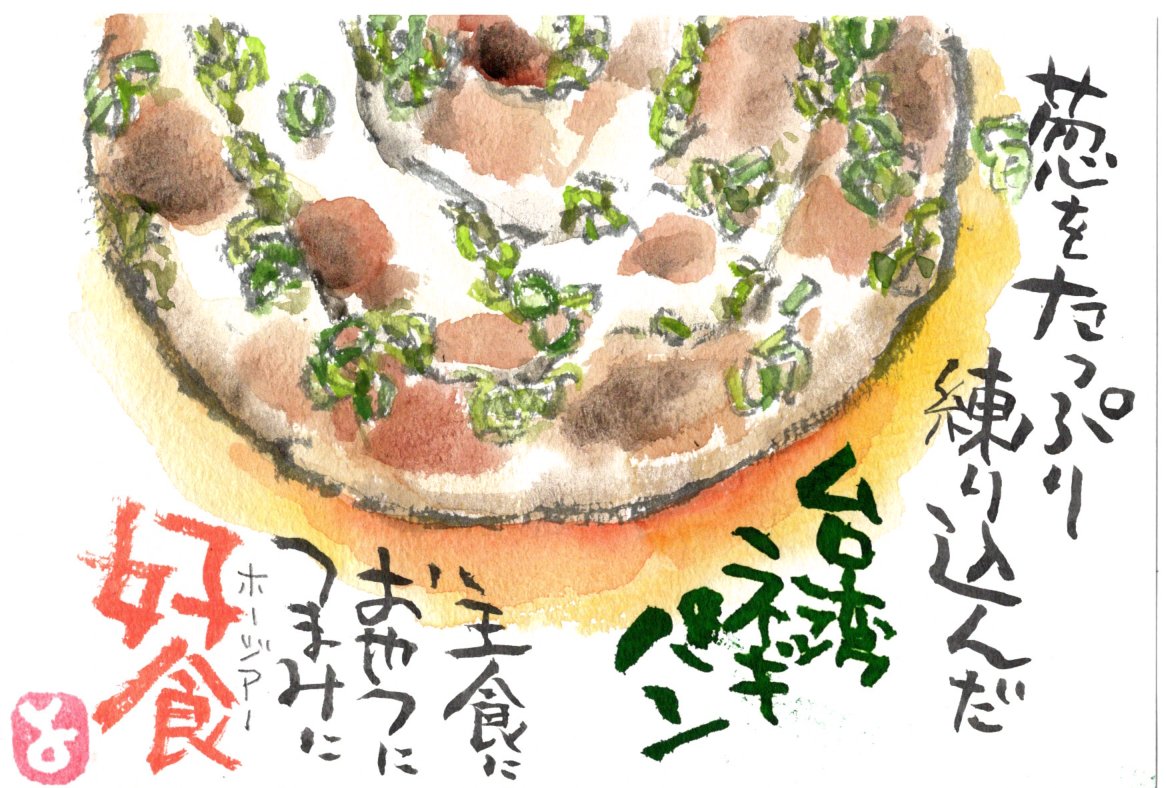 葱をたっぷり
練り込んだ
台湾
ネギ
パン
主食に
おやつに
つまみに
好食
ホーツアー
とよ